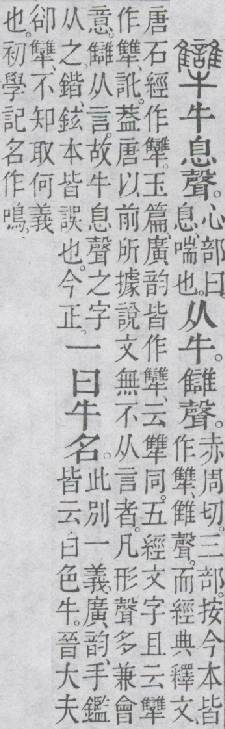 犫牛息聲。心部曰
息、喘也。从牛。讎聲。赤周切。三部。按今本皆
作犨、雔聲。而經典釋文、
唐石經作犫。玉篇廣韵皆作犫、云犨同。五經文字且云犫
作犨訛。葢唐以前所據說文無不从言者。凡形聲多兼會
意。讎从言故牛息聲之字
从之。鍇鉉本皆誤也。今正。一曰牛名。此別一義。廣韵、手鑑
皆云白色牛。晉大夫
郤犫、不知取何義
也。初學記名作鳴。